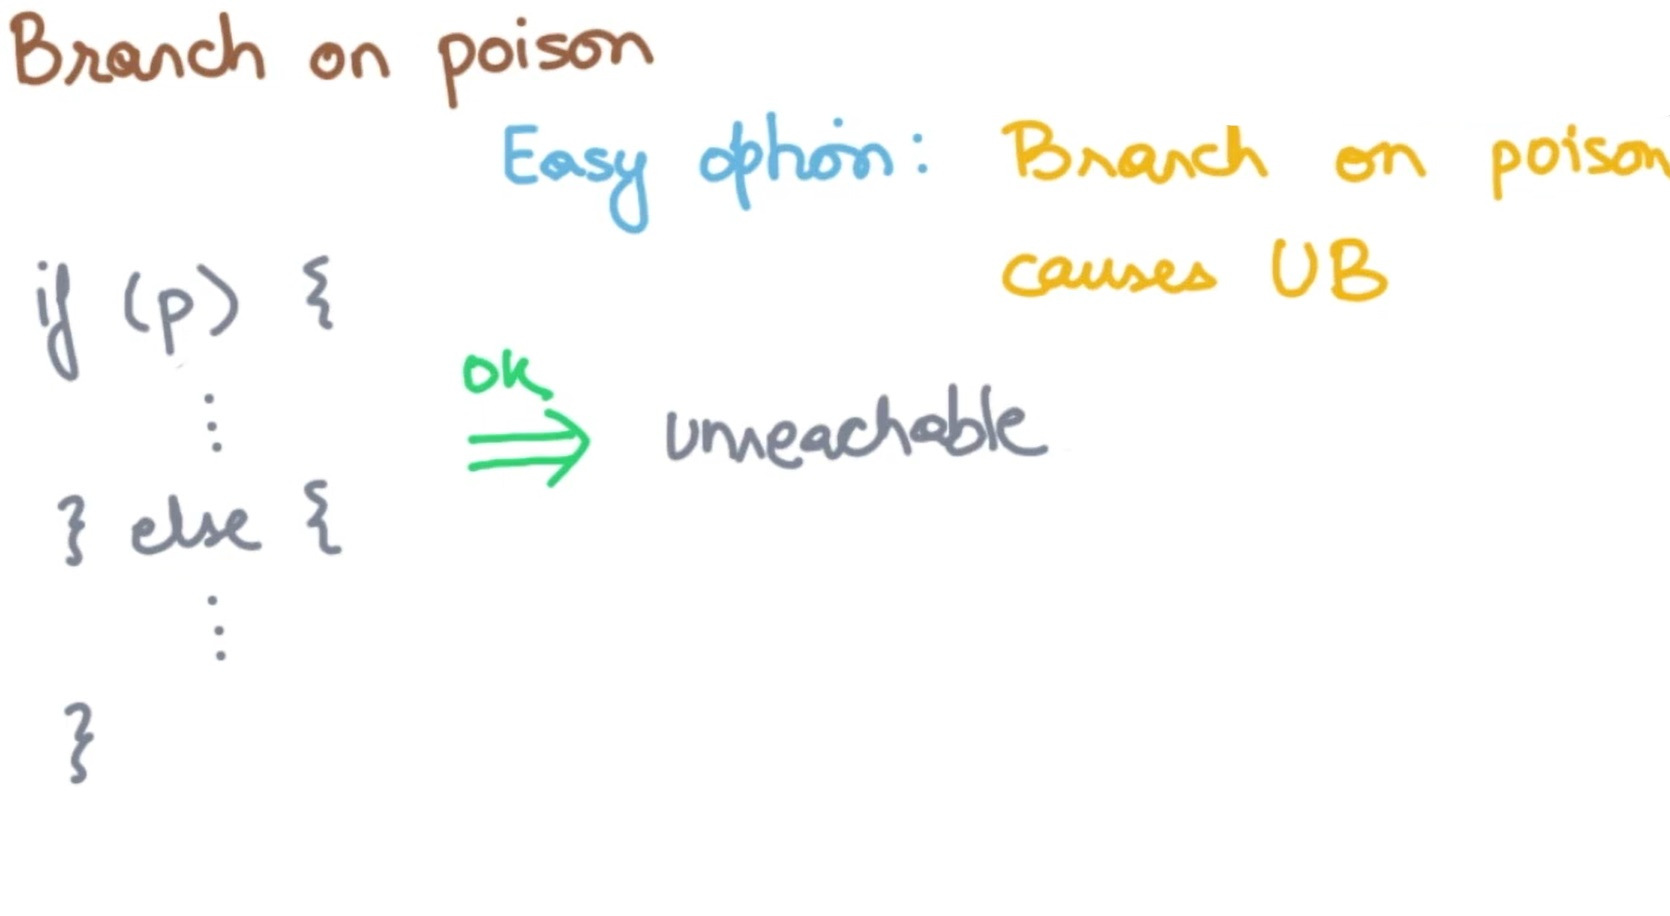 Branch on poison
Easy option: Branch on poison
causes UB
if (p) {
⋮
} else {
⋮
}
OK
⇒ unreachable